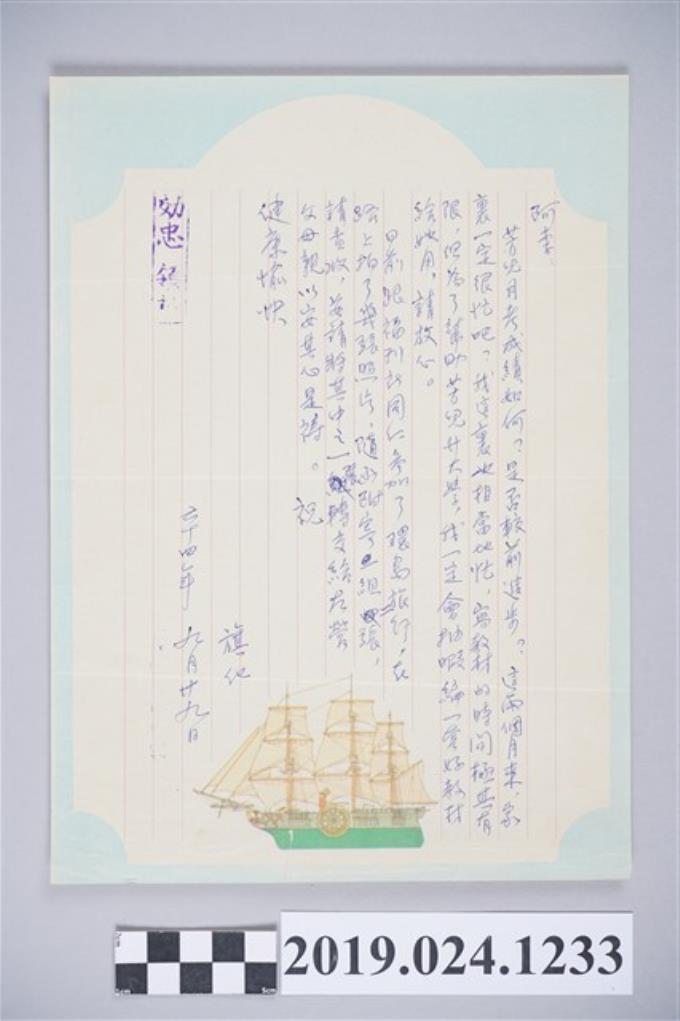 阿李:
芳兒月考成績如何?是否較前進步?這兩個月來,家
裏一定很忙吧?我這裏也相當地忙,寫教材的時間極其有
限,但為了幫助芳兒升大學,我一定會抽暇編一套好教材
給她用,請放心。
日前跟福利社同仁參加了環島旅行,在
給上拍了幾張照片,隨函附寄一組 張,
請查收,並請將其中之一 轉交給左營
父母親以安其心是禱。祝
健康愉快
旗化
六十四年 九月廿九日
効忠
2019.024.1233